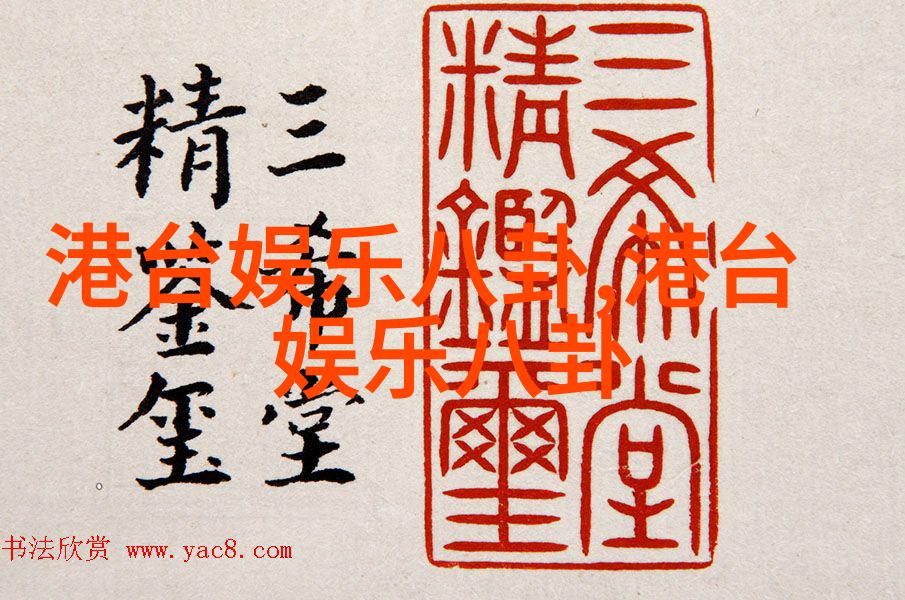 港台娱乐八卦,港台
娱乐八卦
三希堂
精鉴玺
三希堂
精鑑璽
书法欣赏 www.yac8.com